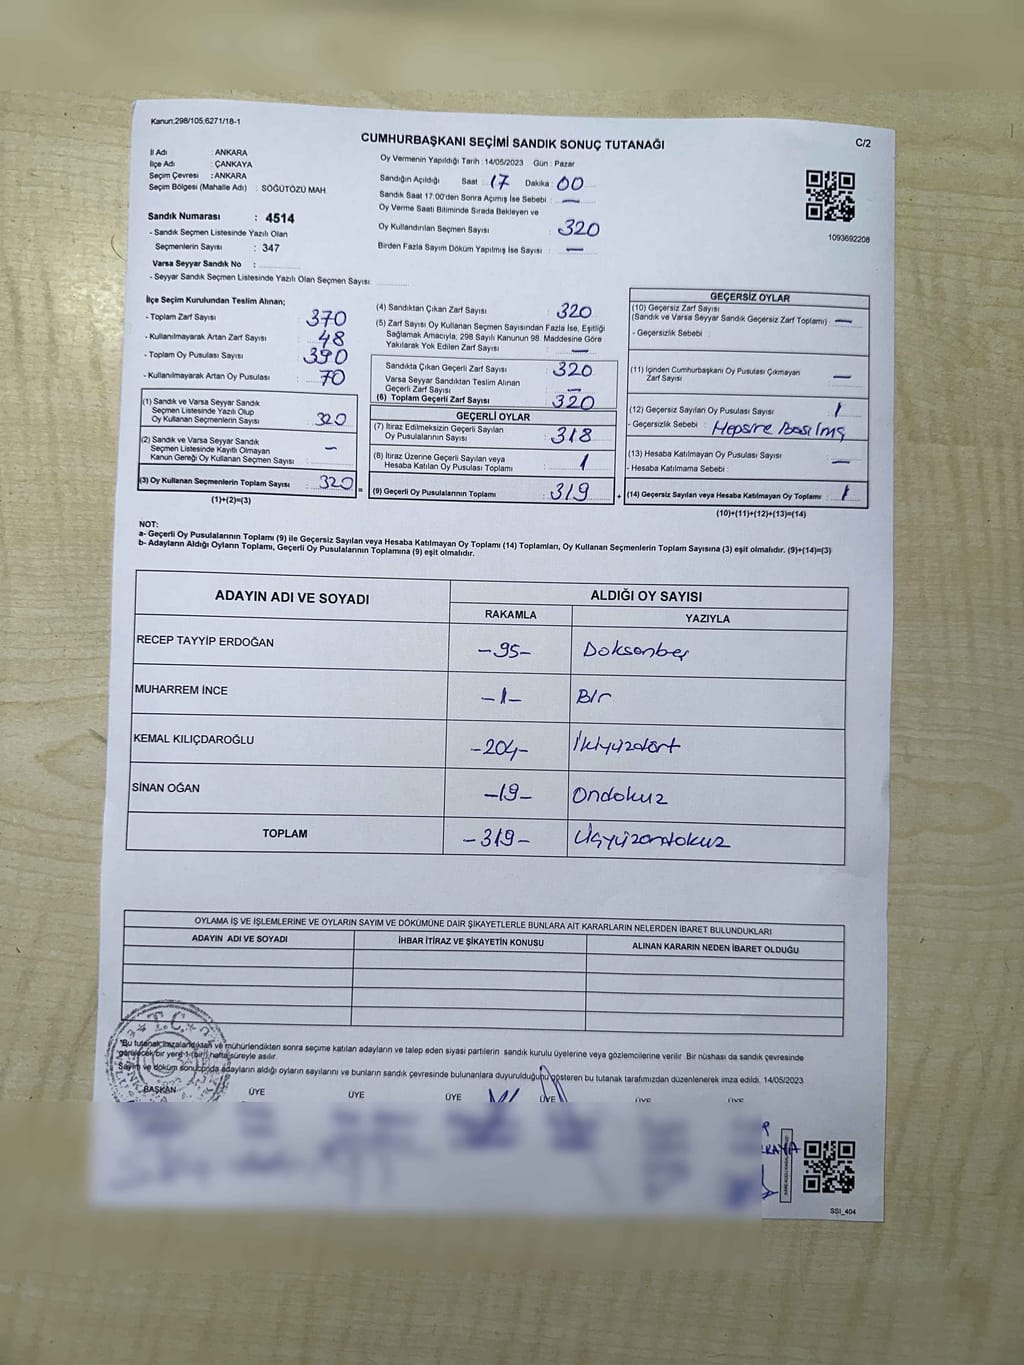 Kanun:298/105,6271/18-1
CUMHURBAŞKANI SEÇİMİ SANDIK SONUÇ TUTANAĞI
C/2
İl Adı : ANKARA
İlçe Adı : ÇANKAYA
Seçim Çevresi : ANKARA
Seçim Bölgesi (Mahalle Adı) : SÖĞÜTÖZÜ MAH.
Sandık Numarası : 4514
- Sandık Seçmen Listesinde Yazılı Olan
Seçmenlerin Sayısı : 347
Varsa Seyyar Sandık No :
- Seyyar Sandık Seçmen Listesinde Yazılı Olan Seçmen Sayısı:
Oy Vermenin Yapıldığı Tarih : 14/05/2023 Gün : Pazar
Sandığın Açıldığı Saat : 17 Dakika : 00
Sandık Saat 17.00'den Sonra Açımış İse Sebebi : —
Oy Verme Saati Bitiminde Sırada Bekleyen ve
Oy Kullandırılan Seçmen Sayısı : 320
Birden Fazla Sayım Döküm Yapılmış İse Sayısı : —
1093692208
İlçe Seçim Kurulundan Teslim Alınan;
- Toplam Zarf Sayısı : 370
- Kullanılmayarak Artan Zarf Sayısı : 48
- Toplam Oy Pusulası Sayısı : 390
- Kullanılmayarak Artan Oy Pusulası : 70
(1) Sandık ve Varsa Seyyar Sandık
Seçmen Listesinde Yazılı Olup
Oy Kullanan Seçmenlerin Sayısı : 320
(2) Sandık ve Varsa Seyyar Sandık
Seçmen Listesinde Kayıtlı Olmayan
Kanun Gereği Oy Kullanan Seçmen Sayısı : —
(3) Oy Kullanan Seçmenlerin Toplam Sayısı : 320
(1)+(2)=(3)
(4) Sandıktan Çıkan Zarf Sayısı : 320
(5) Zarf Sayısı Oy Kullanan Seçmen Sayısından Fazla İse, Eşitliği
Sağlamak Amacıyla, 298 Sayılı Kanunun 98. Maddesine Göre
Yakılarak Yok Edilen Zarf Sayısı : —
Sandıkta Çıkan Geçerli Zarf Sayısı : 320
Varsa Seyyar Sandıktan Teslim Alınan
Geçerli Zarf Sayısı : —
(6) Toplam Geçerli Zarf Sayısı : 320
GEÇERLİ OYLAR
(7) İtiraz Edilmeksizin Geçerli Sayılan
Oy Pusulalarının Sayısı : 318
(8) İtiraz Üzerine Geçerli Sayılan veya
Hesaba Katılan Oy Pusulası Toplamı : 1
= (9) Geçerli Oy Pusulalarının Toplamı : 319
GEÇERSİZ OYLAR
(10) Geçersiz Zarf Sayısı
(Sandık ve Varsa Seyyar Sandık Geçersiz Zarf Toplamı) : —
- Geçersizlik Sebebi :
(11) İçinden Cumhurbaşkanı Oy Pusulası Çıkmayan
Zarf Sayısı : —
(12) Geçersiz Sayılan Oy Pusulası Sayısı : 1
- Geçersizlik Sebebi : Hepsine Basılmış
(13) Hesaba Katılmayan Oy Pusulası Sayısı : —
- Hesaba Katılmama Sebebi :
+ (14) Geçersiz Sayılan veya Hesaba Katılmayan Oy Toplamı : 1
(10)+(11)+(12)+(13)=(14)
NOT:
a- Geçerli Oy Pusulalarının Toplamı (9) ile Geçersiz Sayılan veya Hesaba Katılmayan Oy Toplamı (14) Toplamları, Oy Kullanan Seçmenlerin Toplam Sayısına (3) eşit olmalıdır. (9)+(14)=(3)
b- Adayların Aldığı Oyların Toplamı, Geçerli Oy Pusulalarının Toplamına (9) eşit olmalıdır.
ADAYIN ADI VE SOYADI ALDIĞI OY SAYISI
RAKAMLA YAZIYLA
RECEP TAYYİP ERDOĞAN -95- Doksanbeş
MUHARREM İNCE -1- Bir
KEMAL KILIÇDAROĞLU -204- İkiyüzdört
SİNAN OĞAN -19- Ondokuz
TOPLAM -319- Üçyüzondokuz
OYLAMA İŞ VE İŞLEMLERİNE VE OYLARIN SAYIM VE DÖKÜMÜNE DAİR ŞİKAYETLERLE BUNLARA AİT KARARLARIN NELERDEN İBARET BULUNDUKLARI
ADAYIN ADI VE SOYADI İHBAR İTİRAZ VE ŞİKAYETİN KONUSU ALINAN KARARIN NEDEN İBARET OLDUĞU
T.C.
"Bu tutanak imzalandıktan ve mühürlendikten sonra seçime katılan adayların ve talep eden siyasi partilerin sandık kurulu üyelerine veya gözlemcilerine verilir. Bir nüshası da sandık çevresinde
görülecek bir yere 1 (bir) hafta süreyle asılır.
Sayım ve döküm sonucunda adayların aldığı oyların sayılarını ve bunların sandık çevresinde bulunanlara duyurulduğunu gösteren bu tutanak tarafımızdan düzenlenerek imza edildi. 14/05/2023
BAŞKAN ÜYE ÜYE ÜYE ÜYE ÜYE ÜYE
SSI_404